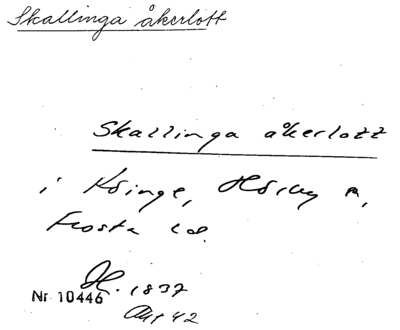 Skallinga åkerlott
Skallinga åkerlott
i Köinge, Hörby sn,
Frosta hd.
H. 1837
Nr 10446
Akt 42